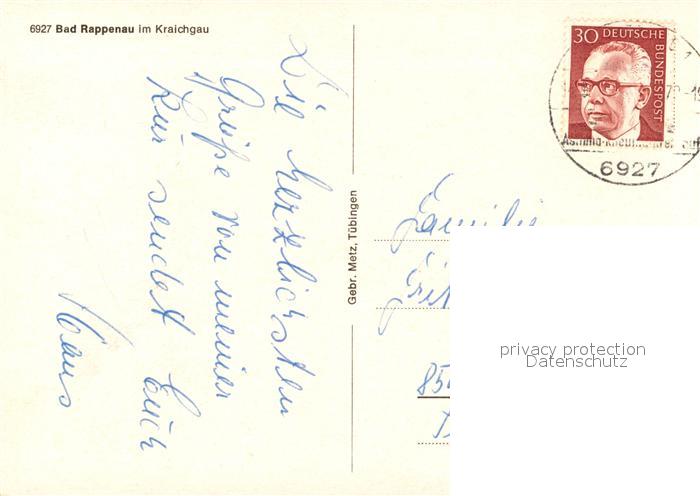 6927 Bad Rappenau im Kraichgau
Die herzlichsten
Grüße von meiner
Kur sendet Euch
Hans
Gebr. Metz, Tübingen
30 DEUTSCHE
BUNDESPOST
6927
Familie
85
privacy protection
Datenschutz